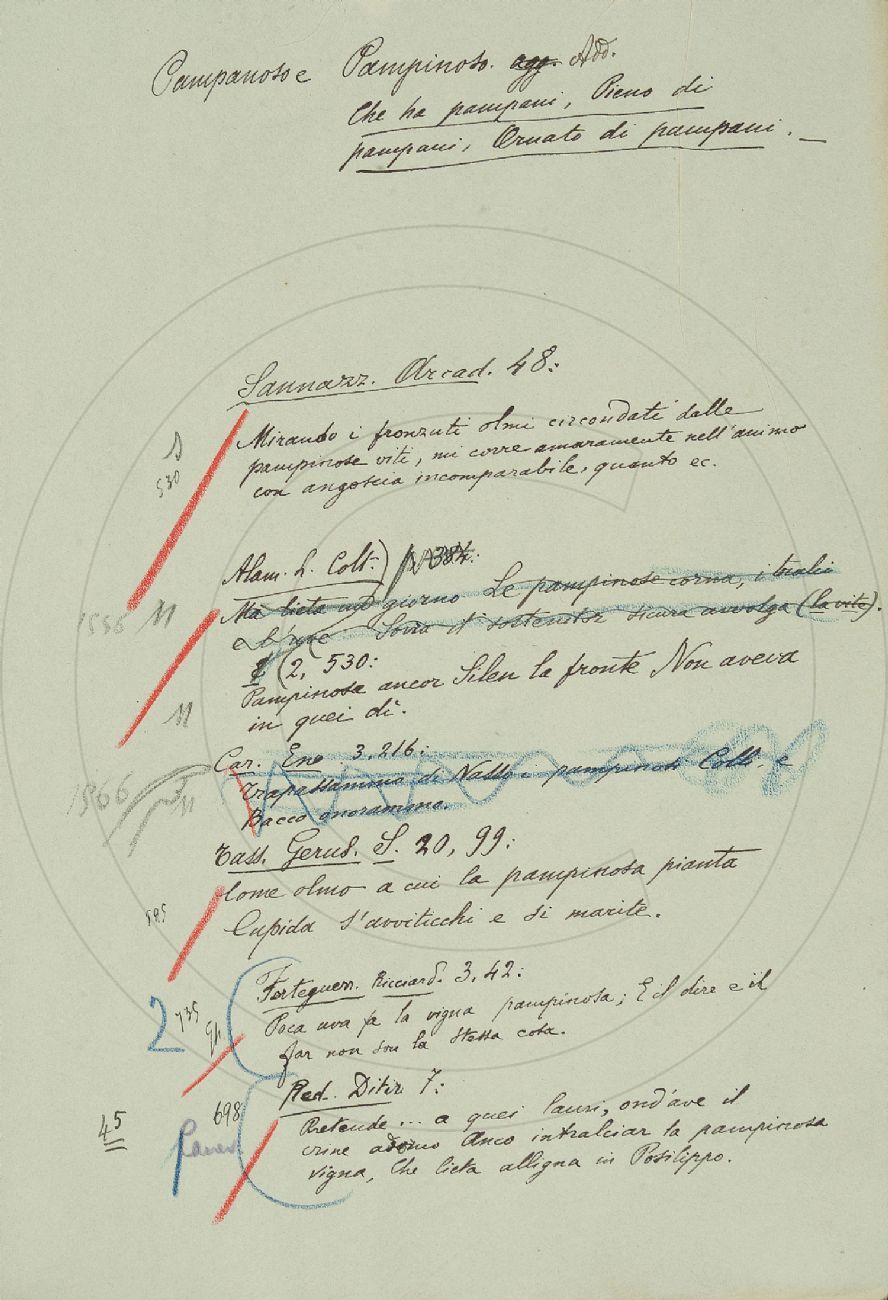 Pampanoso e Pampinoso. agg. Add.
Che ha pampani, Pieno di
pampani, Ornato di pampani. —
Sannazz. Arcad. 48:
Mirando i fronzuti olmi circondati dalle
pampinose viti, mi corre amaramente nell'animo
con angoscia incomparabile, quanto ec.
530
Alam. L. Colt.)
Ma lieta un giorno Le pampinose corna, i tralci
e l'uve Sovra il sostenitor sicura avvolga (la vite).
1556 M
(2, 530:
Pampinosa ancor Silen la fronte Non aveva
in quei dì.
M
Car. Ene 3. 216:
Trapassammo di Nasso i pampinosi Colli, e
Bacco onorammo.
1566
M
Tass. Gerus. S. 20, 99:
Come olmo a cui la pampinosa pianta
Cupida s'avviticchi e si marite.
595
Forteguerr. Ricciard. 3, 42:
Poca uva fa la vigna pampinosa; E il dire e il
far non son la stessa cosa.
2 735
Red. Ditir 7:
Pretende ... a quei lauri, ond'ave il
crine adorno Anco intralciar la pampinosa
vigna, Che lieta alligna in Posilippo.
698
45